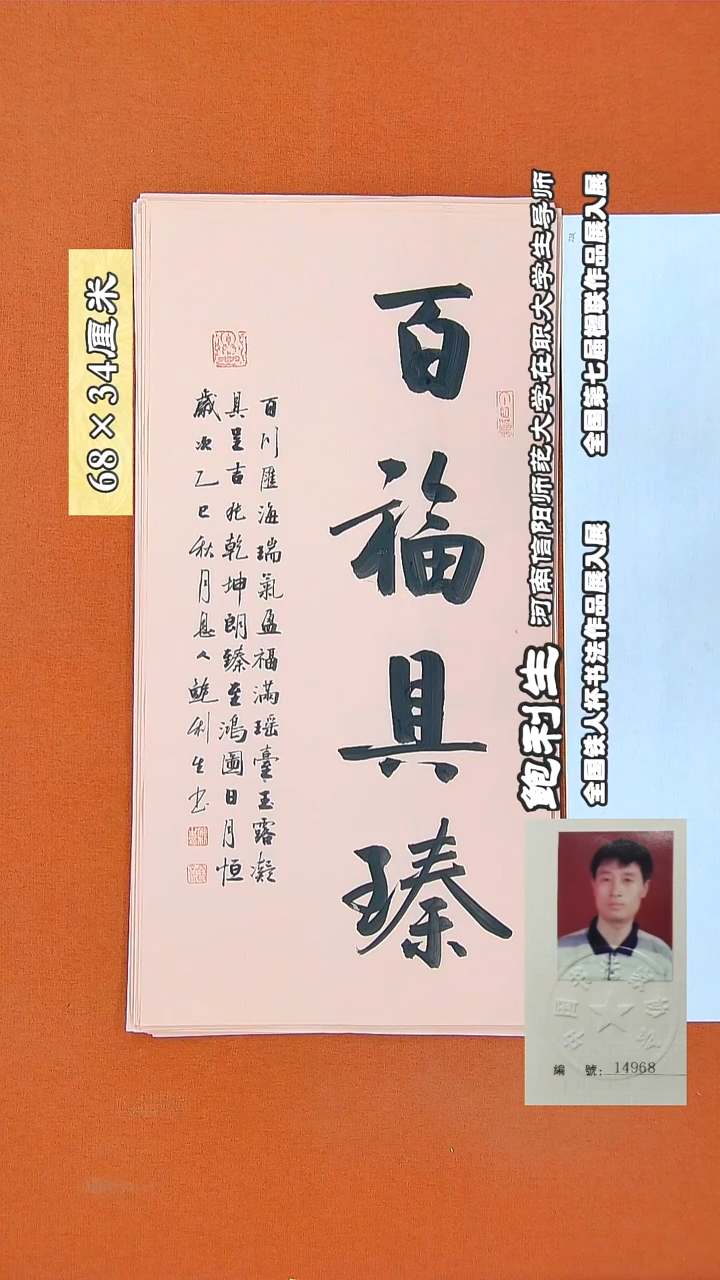 百福具臻
百川匯海瑞氣盈福滿瑶臺玉露凝
具呈吉兆乾坤朗臻至鴻圖日月恒
歲次乙巳秋月息人鲍利生书
68×34厘米
鲍利生
河南信阳师范大学在职大学生导师
全国第七届楹联作品展入展
全国铁人杯书法作品展入展
編 號：14968